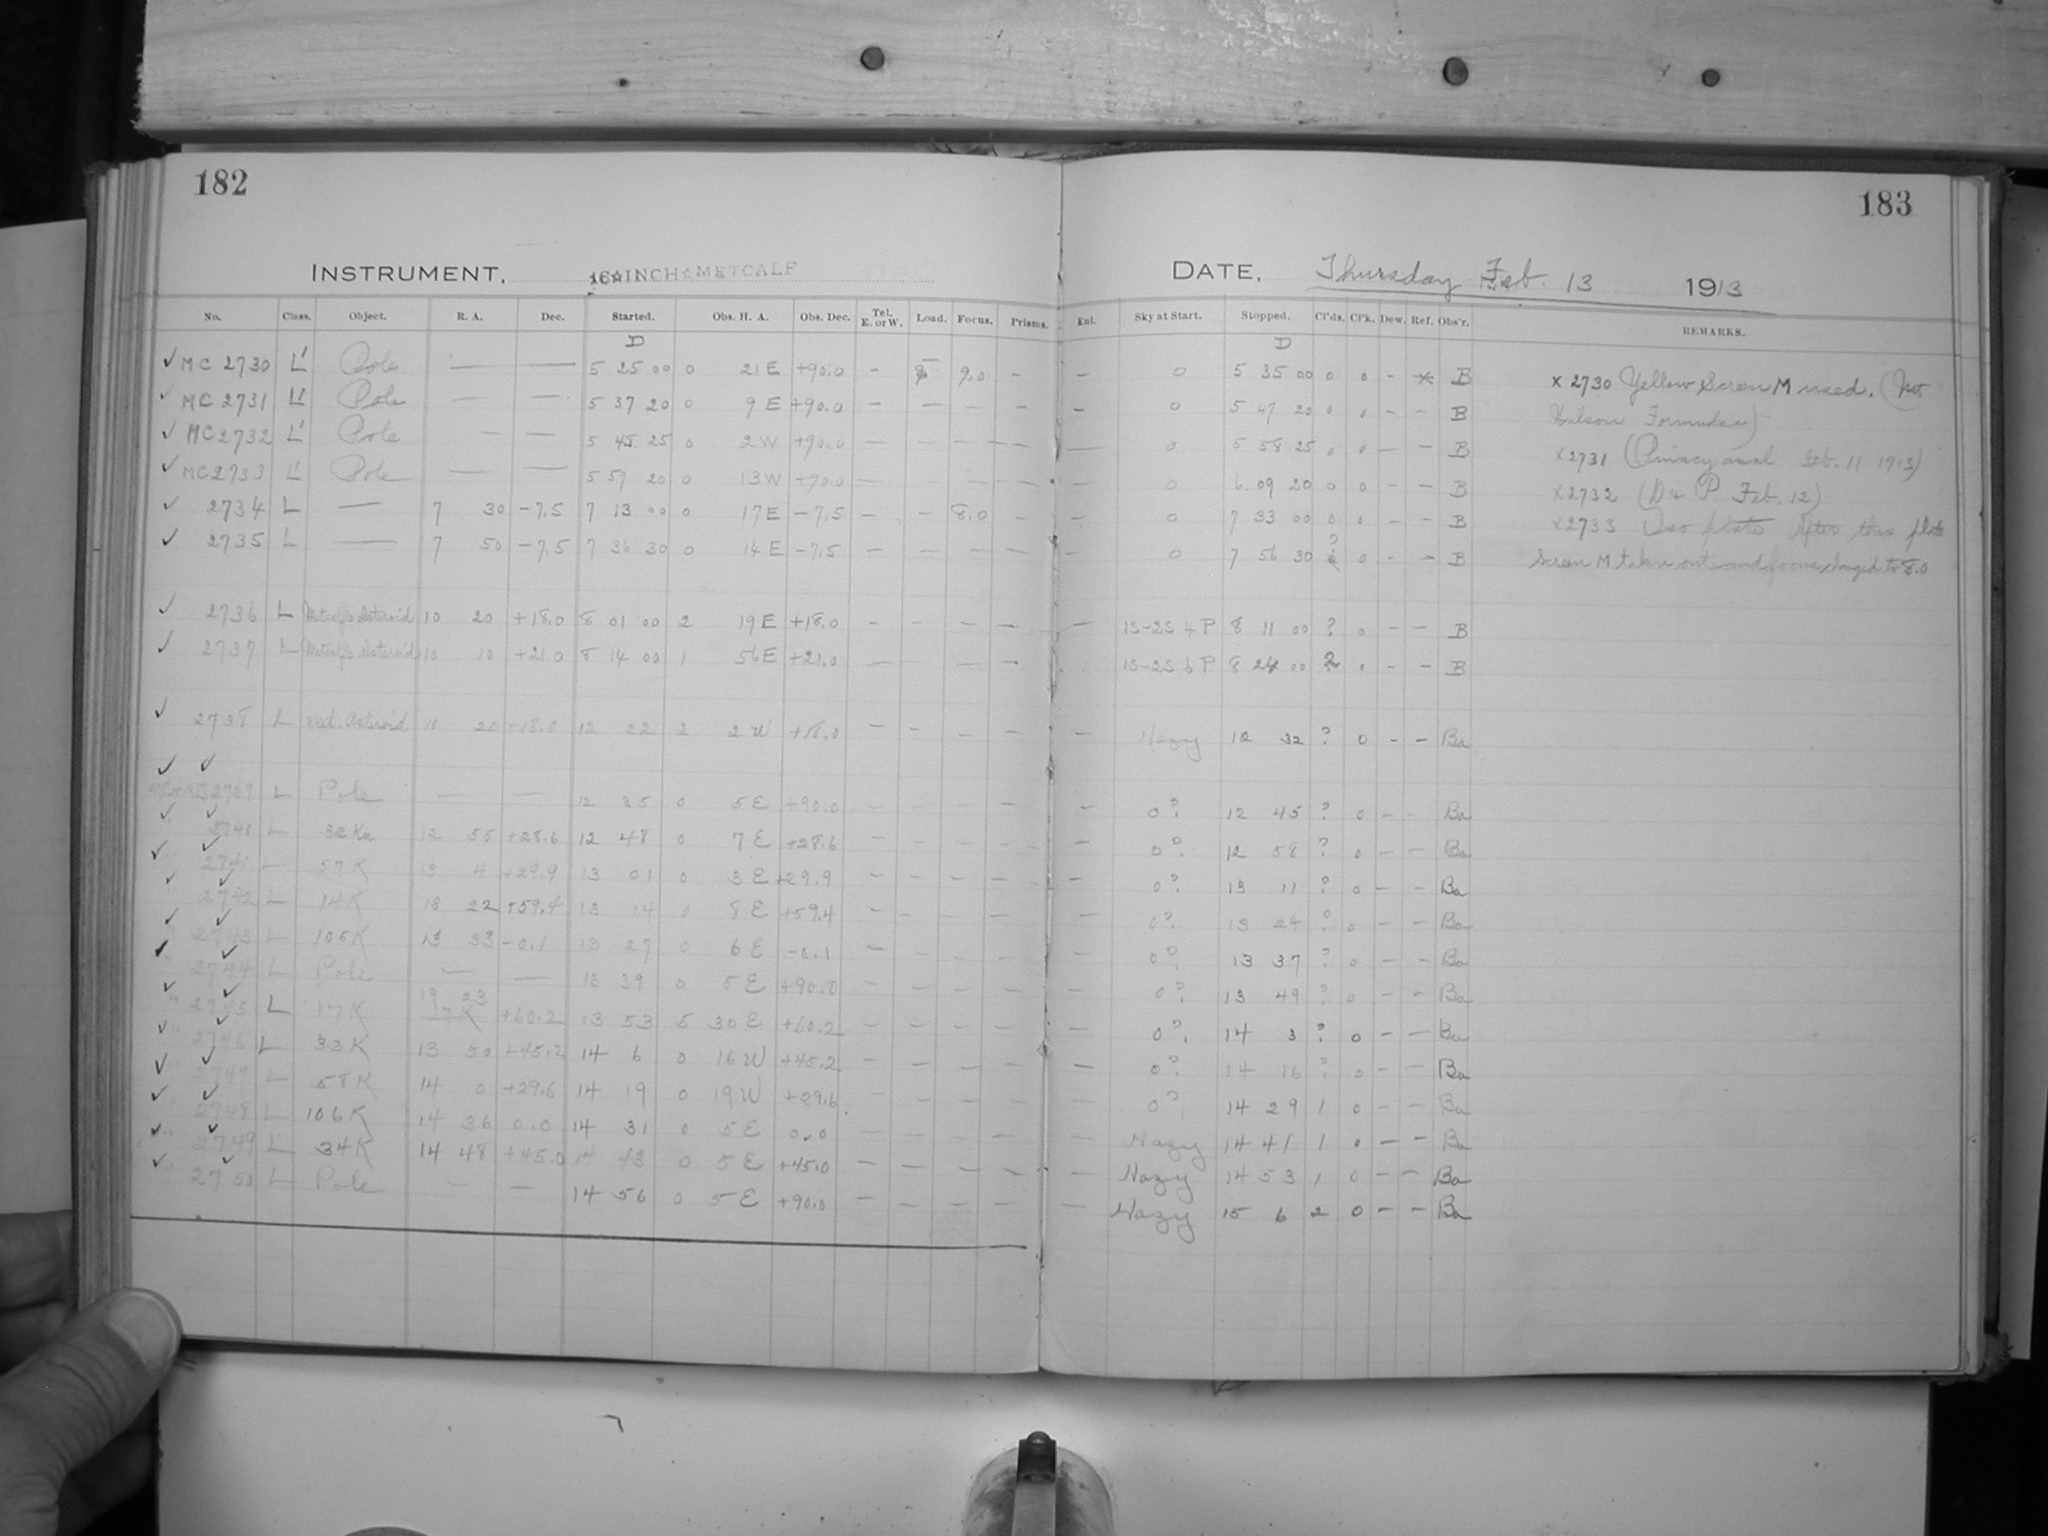 182
183
INSTRUMENT, 16 INCH METCALF
DATE, Thursday Feb. 13 1913
No. Class. Object. R. A. Dec. Started. Obs. H. A. Obs. Dec. Tel. E. or W. Load. Focus. Prisms. Enl. Sky at Start. Stopped. Cl'ds. Cl'k. Dew. Ref. Obs'r. REMARKS.
D D
✓ MC 2730 L' Pole — — 5 25 00 0 21 E +90.0 - 9.0 - - 0 5 35 00 0 0 - B x 2730 Yellow Screen M used. (Not
✓ MC 2731 L' Pole — — 5 37 20 0 9 E +90.0 - - - - - 0 5 47 20 0 0 - - B Formulae)
✓ MC 2732 L' Pole — — 5 45 25 0 2 W +90.0 - - - - - 0 5 58 25 0 0 - - B x 2731 Feb. 11 1913)
✓ MC 2733 L' Pole — — 5 57 20 0 13 W +90.0 - - - - 0 6 09 20 0 0 - - B x 2732 Feb. 12)
✓ 2734 L — 7 30 -7.5 7 13 00 0 17 E -7.5 - - 8.0 - - 0 7 33 00 0 0 - - B x 2733 Iso plate After this plate
✓ 2735 L — 7 50 -7.5 7 36 30 0 14 E -7.5 - - - - - 0 7 56 30 ? 0 - - B Screen M taken out and focus changed to 8.0
✓ 2736 L Metcalf's Asteroid 10 20 +18.0 8 01 00 2 19 E +18.0 - - - - - 1S-2S 4 P 8 11 00 ? 0 - - B
✓ 2737 L Metcalf's Asteroid 10 10 +21.0 8 14 00 1 56 E +21.0 - - - - - 1S-2S 6 P 8 24 00 2 0 - - B
✓ 2738 L Met. Asteroid 10 20 +18.0 12 22 2 2 W +18.0 - - - - - Hazy 12 32 ? 0 - - Ba
✓ ✓ L Pole — — 12 35 0 5 E +90.0 - - - - - 0? 12 45 ? 0 - - Ba
✓ ✓ 2740 L 32 Ka 12 55 +28.6 12 48 0 7 E +28.6 - - - - - 0? 12 58 ? 0 - - Ba
✓ ✓ " 2741 L 57 K 13 4 +29.9 13 01 0 3 E +29.9 - - - - - 0? 13 11 ? 0 - - Ba
✓ ✓ " 2742 L 14 K 13 22 +59.4 13 14 0 8 E +59.4 - - - - - 0? 13 24 ? 0 - - Ba
✓ ✓ " 2743 L 105 K 13 33 -0.1 13 27 0 6 E -0.1 - - - - - 0? 13 37 ? 0 - - Ba
✓ ✓ " 2744 L Pole — — 13 39 0 5 E +90.0 - - - - - 0? 13 49 ? 0 - - Ba
19 23
✓ ✓ " 2745 L 17 K 17 K +60.2 13 53 5 30 E +60.2 - - - - - 0? 14 3 ? 0 - - Ba
✓ ✓ " 2746 L 33 K 13 50 +45.2 14 6 0 16 W +45.2 - - - - - 0? 14 16 ? 0 - - Ba
✓ ✓ " 2747 L 58 K 14 0 +29.6 14 19 0 19 W +29.6 - - - - - 0? 14 29 1 0 - - Ba
✓ ✓ " 2748 L 106 K 14 36 0.0 14 31 0 5 E 0.0 - - - - - Hazy 14 41 1 0 - - Ba
✓ ✓ " 2749 L 34 K 14 48 +45.0 14 43 0 5 E +45.0 - - - - - Hazy 14 53 1 0 - - Ba
✓ ✓ " 2750 L Pole — — 14 56 0 5 E +90.0 - - - - - Hazy 15 6 2 0 - - Ba